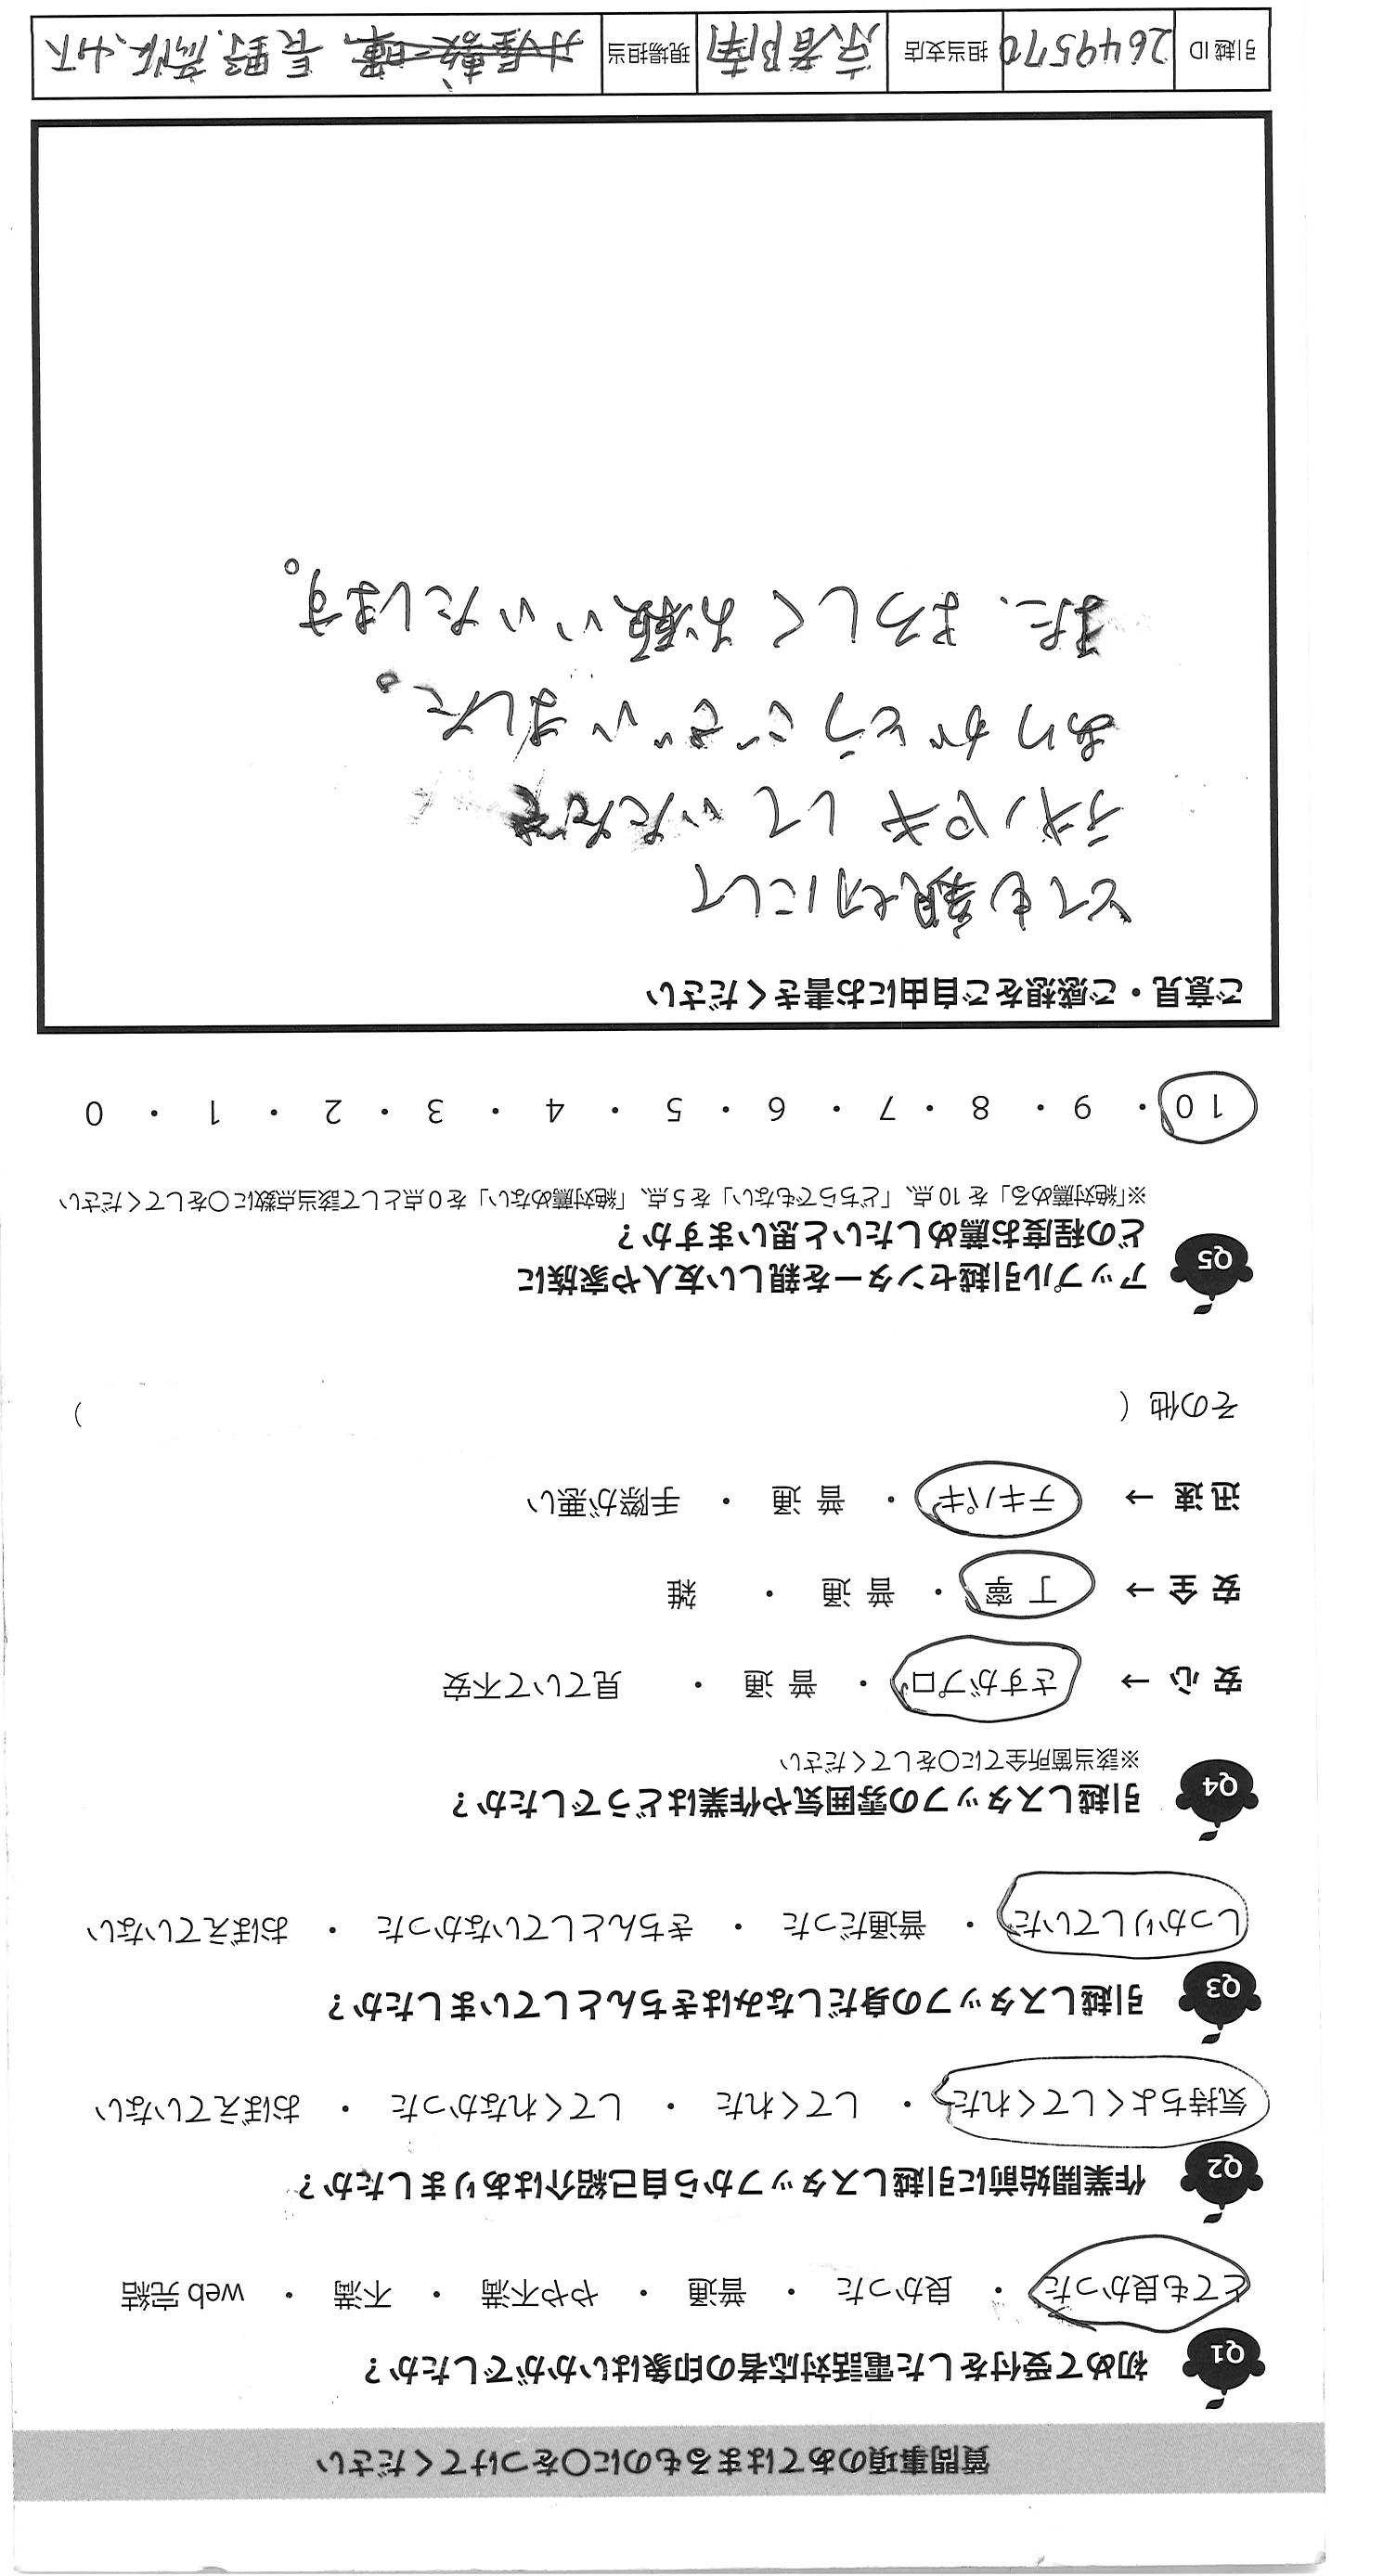 質問事項のあてはまるものに〇をつけてください
Q1 初めて受付をした電話対応者の印象はいかがでしたか?
とても良かった ・ 良かった ・ 普通 ・ やや不満 ・ 不満 ・ web 完結
Q2 作業開始前に引越しスタッフから自己紹介はありましたか?
気持ちよくしてくれた ・ してくれた ・ してくれなかった ・ おぼえていない
Q3 引越しスタッフの身だしなみはきちんとしていましたか?
しっかりしていた ・ 普通だった ・ きちんとしていなかった ・ おぼえていない
Q4 引越しスタッフの雰囲気や作業はどうでしたか?
※該当箇所全てに〇をしてください
安心 → さすがプロ ・ 普通 ・ 見ていて不安
安全 → 丁寧 ・ 普通 ・ 雑
迅速 → テキパキ ・ 普通 ・ 手際が悪い
その他 ( )
Q5 アップル引越センターを親しい友人や家族に
どの程度お薦めしたいと思いますか?
※「絶対薦める」を 10 点、「どちらでもない」を 5 点、「絶対薦めない」を 0 点として該当点数に〇をしてください
10 ・ 9 ・ 8 ・ 7 ・ 6 ・ 5 ・ 4 ・ 3 ・ 2 ・ 1 ・ 0
ご意見・ご感想をご自由にお書きください
とても親切にして
テキパキしていただき
ありがとうございました。
また、よろしくお願いいたします。
引越 ID 2649570 担当支店 京都南 現場担当 長野、高阪、山下